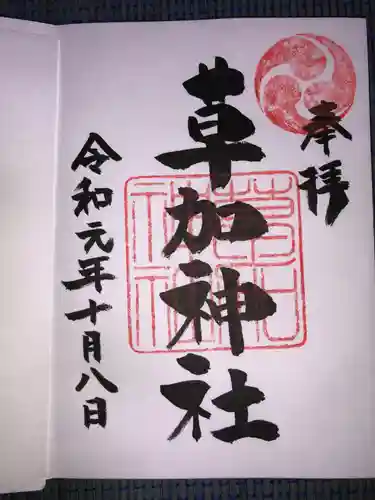 奉拝
草加神社
令和元年十月八日